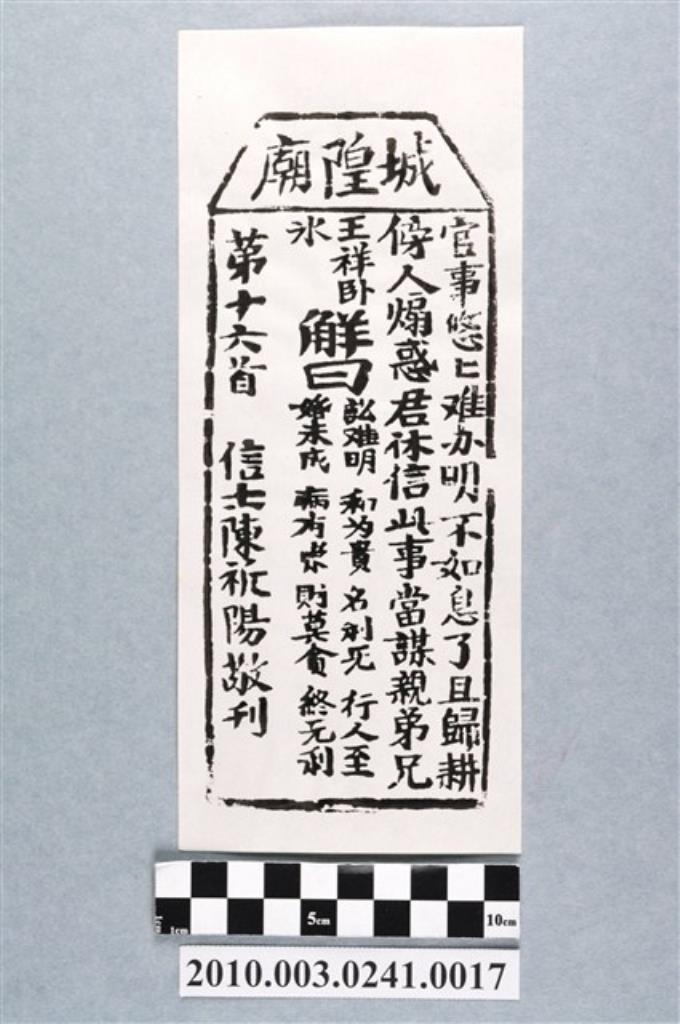 城隍廟
官事悠匕难办明不如息了且歸耕
傍人煽惑君休信此事當謀親弟兄
王祥卧
冰
解曰
訟难明 和为貴 名利无 行人至
婚未成 病有祟 財莫貪 終无利
第十六首 信士陳陽敬刊
1cm 5cm 10cm
2010.003.0241.0017